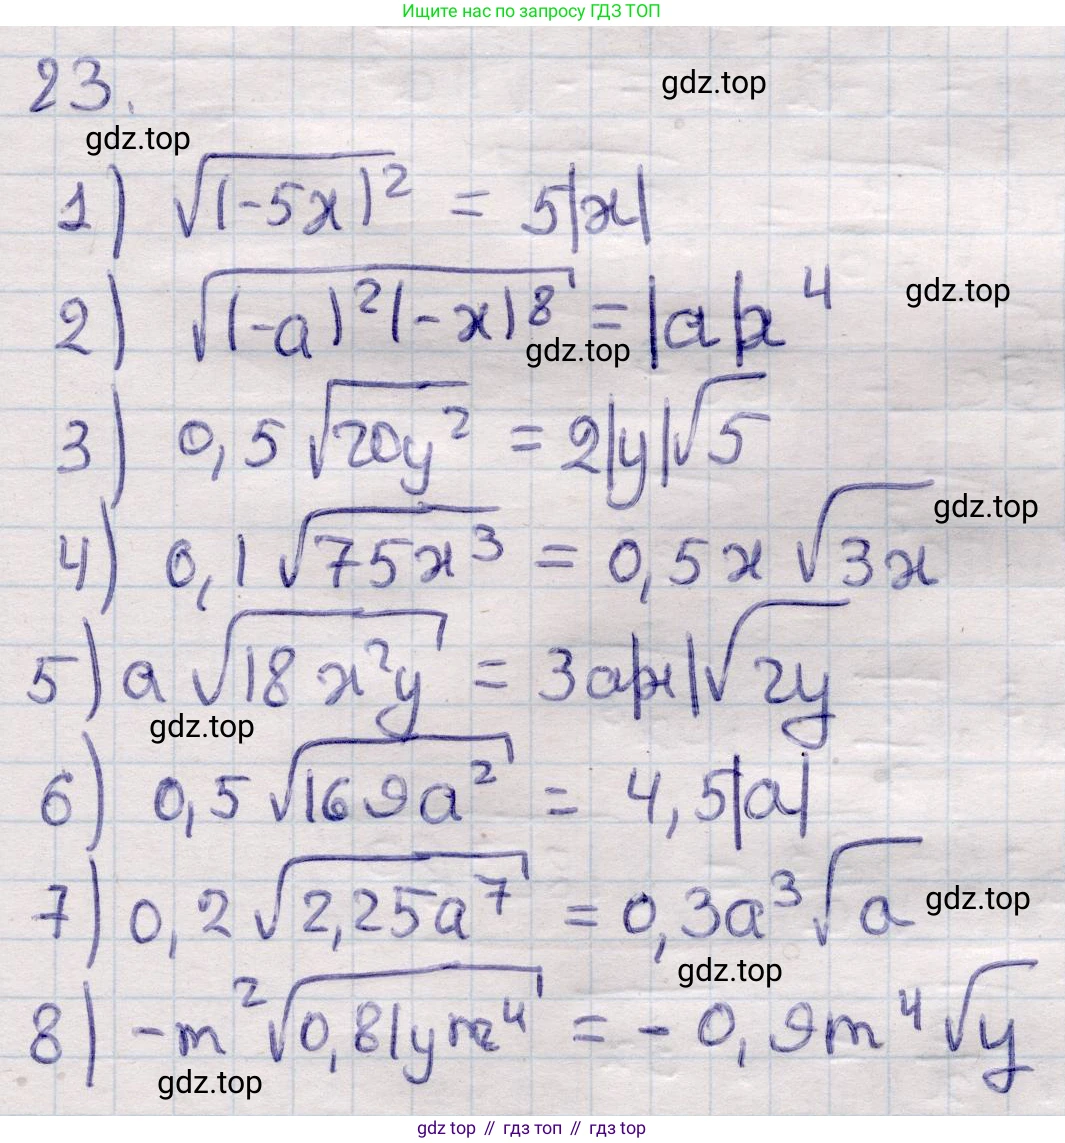 Ищите нас по запросу ГДЗ ТОП
gdz.top
23.
gdz.top
1) √(-5x)² = 5|x|
2) √(-a)²(-x)⁸ = |a|x⁴
gdz.top
gdz.top
3) 0,5 √20y² = 2|y|√5
gdz.top
4) 0,1 √75x³ = 0,5x √3x
5) a √18x²y = 3a|x|√2y
gdz.top
6) 0,5 √169a² = 4,5|a|
7) 0,2 √2,25a⁷ = 0,3a³√a
gdz.top
gdz.top
8) -m² √0,81ym⁴ = - 0,9m⁴ √y
gdz.top
gdz top // гдз топ // gdz top